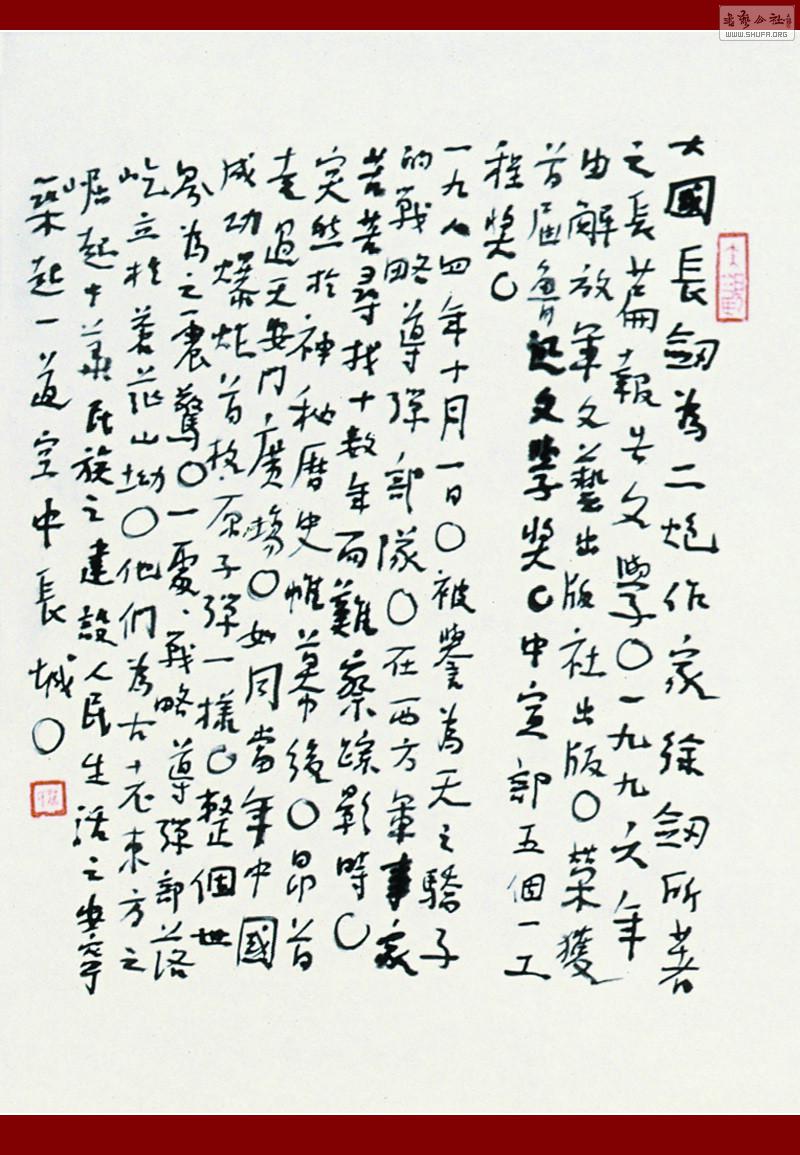 大國長劍為二炮作家徐劍所著
之長篇報告文學〇一九九六年
由解放軍文藝出版社出版〇榮獲
首屆魯迅文學獎〇中宣部五個一工
程獎〇
一九八四年十月一日〇被譽為天之驕子
的戰略導彈部隊〇在西方軍事家
苦苦尋找十數年而難察蹤影時〇
突然於神秘曆史帷幕後〇昂首
走過天安門廣場〇如同當年中國
成功爆炸首枚原子彈一樣〇整個世
界為之震驚〇一夜戰略導彈部落
屹立於蒼茫山坳〇他們為古老東方之
崛起中華民族之建設人民生活之安寧
築起一道空中長城〇
書藝公社
WWW.SHUFA.ORG